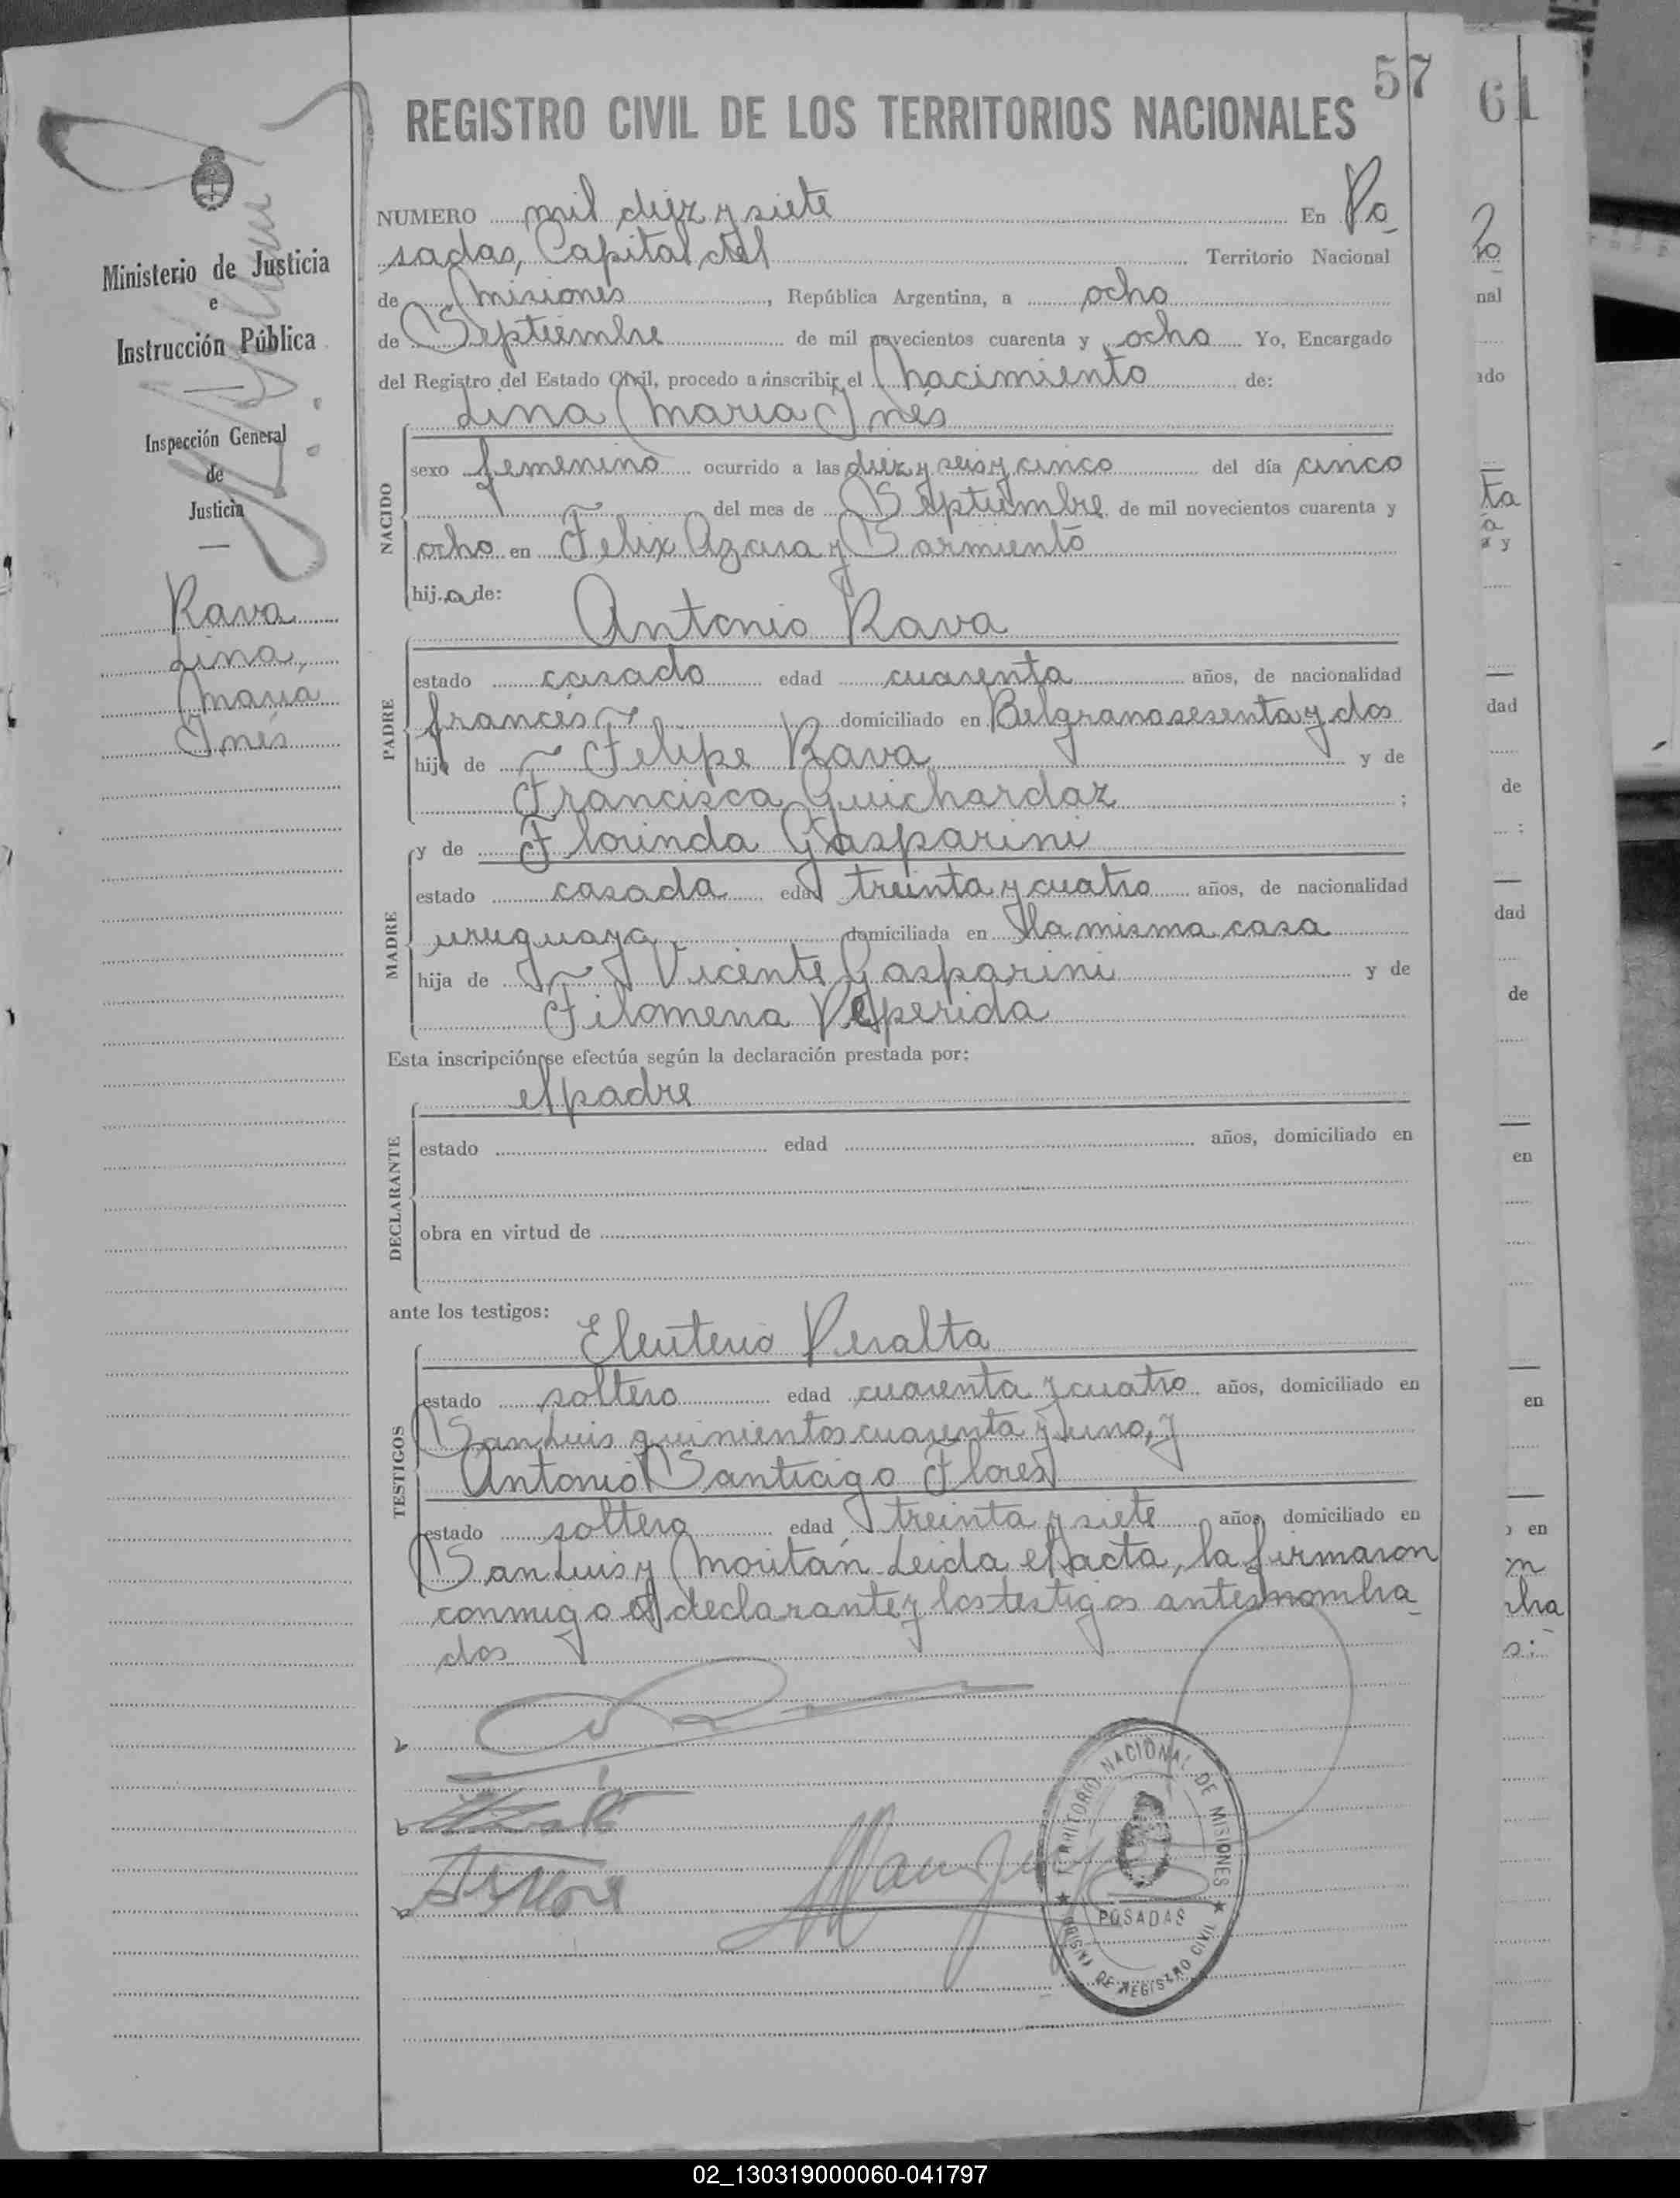 57
61
REGISTRO CIVIL DE LOS TERRITORIOS NACIONALES
NUMERO mil diez y siete En Po-
sadas, Capital del Territorio Nacional
de Misiones, República Argentina, a ocho
de Septiembre de mil novecientos cuarenta y ocho Yo, Encargado
del Registro del Estado Civil, procedo a inscribir el nacimiento de:
Lina Maria Inés
NACIDO
sexo femenino ocurrido a las diez y seis y cinco del día cinco
del mes de Septiembre de mil novecientos cuarenta y
ocho en Felix Azara y Sarmiento
hija de:
Antonio Rava
PADRE
estado casado edad cuarenta años, de nacionalidad
francés domiciliado en Belgrano sesenta y dos
hijo de Felipe Rava y de
Francisca Guichardaz ;
y de Florinda Gasparini
MADRE
estado casada edad treinta y cuatro años, de nacionalidad
uruguaya domiciliada en la misma casa
hija de Vicente Gasparini y de
Filomena
Esta inscripción se efectúa según la declaración prestada por:
el padre
DECLARANTE
estado edad años, domiciliado en
obra en virtud de
ante los testigos:
Eleuterio Peralta
TESTIGOS
estado soltero edad cuarenta y cuatro años, domiciliado en
San Luis quinientos cuarenta y uno, y
Antonio Santiago Flores
estado soltero edad treinta y siete años, domiciliado en
San Luis y Moritán. Leida el acta, la firmaron
conmigo el declarante y los testigos antes nombra-
dos
TERRITORIO NACIONAL DE MISIONES
POSADAS
OFICINA DE REGISTRO CIVIL
Ministerio de Justicia
e
Instrucción Pública
Inspección General
de
Justicia
Rava
Lina,
Maria
Inés
nal
ado
ta
a
y
dad
de
;
dad
de
en
en
en
bra
s:
02_130319000060-041797